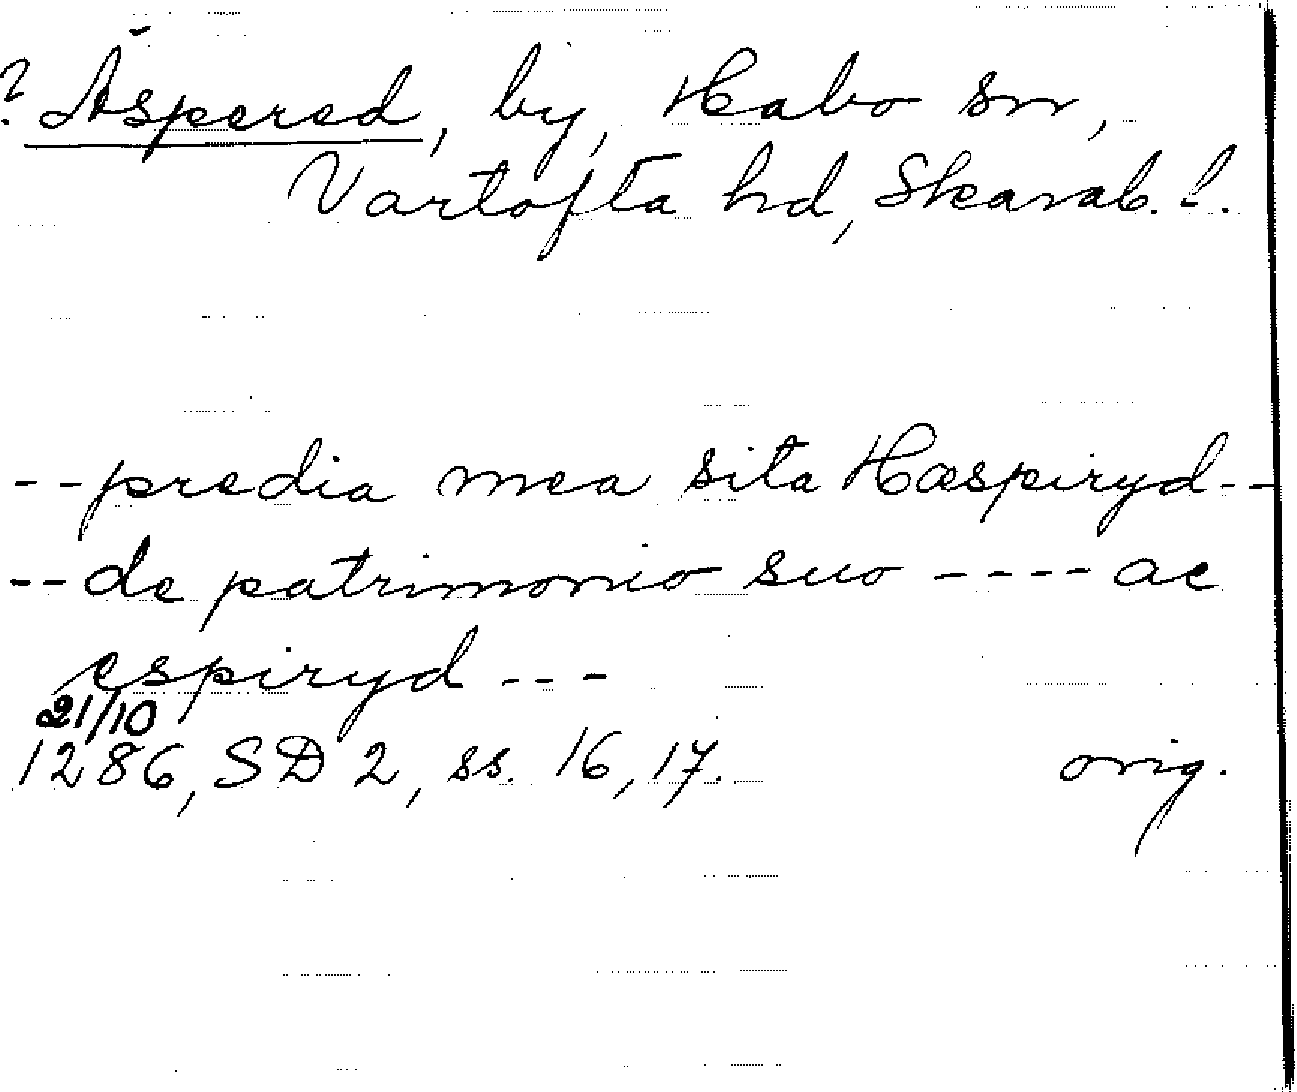 ? Äspered, by, Habo sn,
Vartofta hd, Skarab. l.
--predia mea sita Hæspiryd--
--de patrimonio suo ---- ac
espiryd ---
21/10
1286, SD 2, ss. 16, 17. orig.